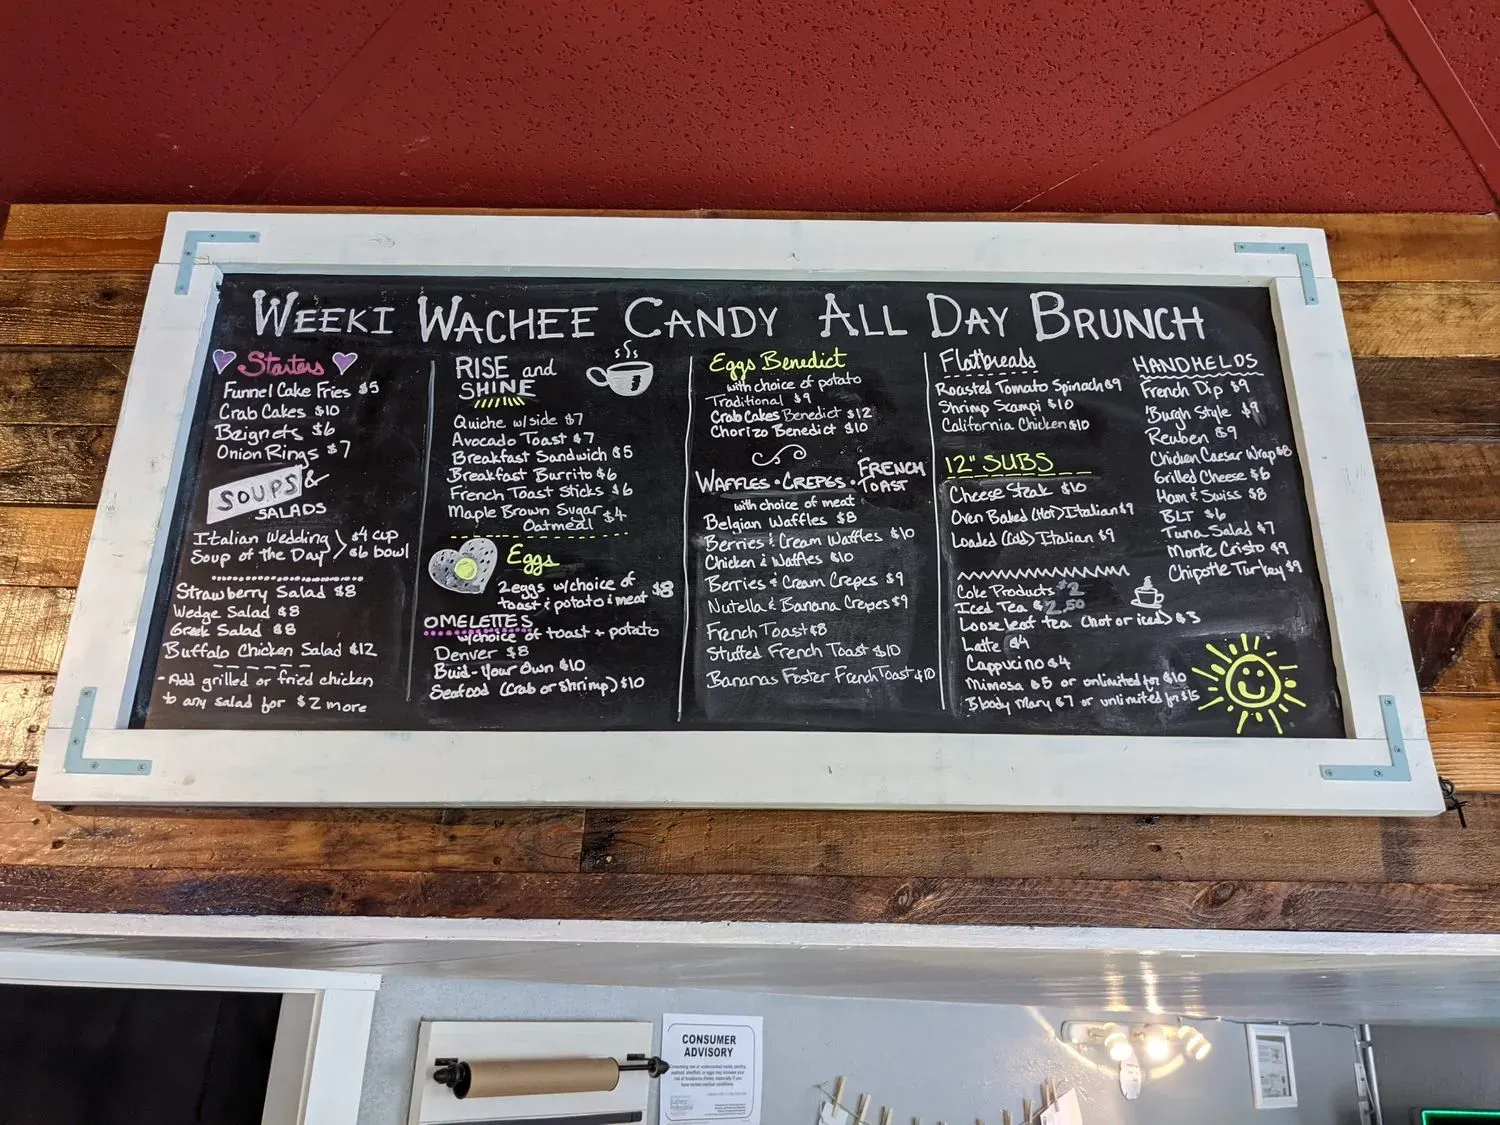 WEEKI WACHEE CANDY ALL DAY BRUNCH
Starters
Funnel Cake Fries $5
Crab Cakes $10
Beignets $6
Onion Rings $7
SOUPS &
SALADS
Italian Wedding
Soup of the Day
$4 cup
$6 bowl
Strawberry Salad $8
Wedge Salad $8
Greek Salad $8
Buffalo Chicken Salad $12
- Add grilled or fried chicken
to any salad for $2 more
RISE and
SHINE
Quiche w/side $7
Avocado Toast $7
Breakfast Sandwich $5
Breakfast Burrito $6
French Toast Sticks $6
Maple Brown Sugar
Oatmeal $4
Eggs
2 eggs w/choice of
toast & potato & meat $8
OMELETTES
w/choice of toast + potato
Denver $8
Buid-Your Own $10
Seafood (Crab or Shrimp) $10
Eggs Benedict
with choice of potato
Traditional $9
Crab Cakes Benedict $12
Chorizo Benedict $10
WAFFLES • CREPES • FRENCH
TOAST
with choice of meat
Belgian Waffles $8
Berries & Cream Waffles $10
Chicken & Waffles $10
Berries & Cream Crepes $9
Nutella & Banana Crepes $9
French Toast $8
Stuffed French Toast $10
Bananas Foster French Toast $10
Flatbreads
Roasted Tomato Spinach $9
Shrimp Scampi $10
California Chicken $10
12" SUBS
Cheese Steak $10
Oven Baked (Hot) Italian $9
Loaded (Cold) Italian $9
Coke Products $2
Iced Tea $2.50
Loose leaf tea (hot or iced) $3
Latte $4
Cappucino $4
Mimosa $5 or unlimited for $10
Bloody Mary $7 or unlimited for $15
HANDHELDS
French Dip $9
'Burgh Style $9
Reuben $9
Chicken Caesar Wrap $8
Grilled Cheese $6
Ham & Swiss $8
BLT $6
Tuna Salad $7
Monte Cristo $9
Chipotle Turkey $9
CONSUMER
ADVISORY